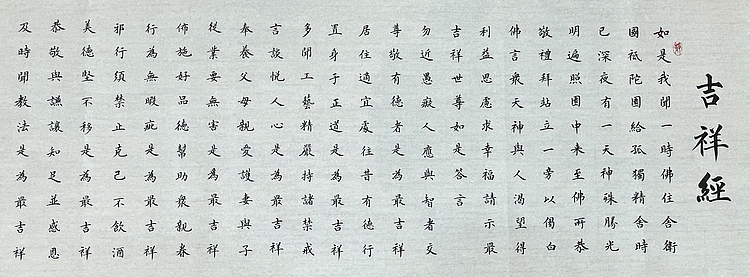 吉祥經
如是我聞一時佛住舍衛
國祇陀園給孤獨精舍時
已深夜有一天神殊勝光
明遍照園中来至佛所恭
敬禮拜站立一旁以偈白
佛言衆天神與人渴望得
利益思慮求幸福請示最
吉祥世尊如是答言
勿近愚癡人應與智者交
尊敬有德者是為最吉祥
居住適宜處往昔有德行
置身于正道是為最吉祥
多聞工藝精嚴持諸禁戒
言談悅人心是為最吉祥
奉養父母親愛護妻與子
從業要無害是為最吉祥
佈施好品德幫助衆親眷
行為無瑕疵是為最吉祥
邪行須禁止克己不飲酒
美德堅不移是為最吉祥
恭敬與謙讓知足並感恩
及時聞教法是為最吉祥